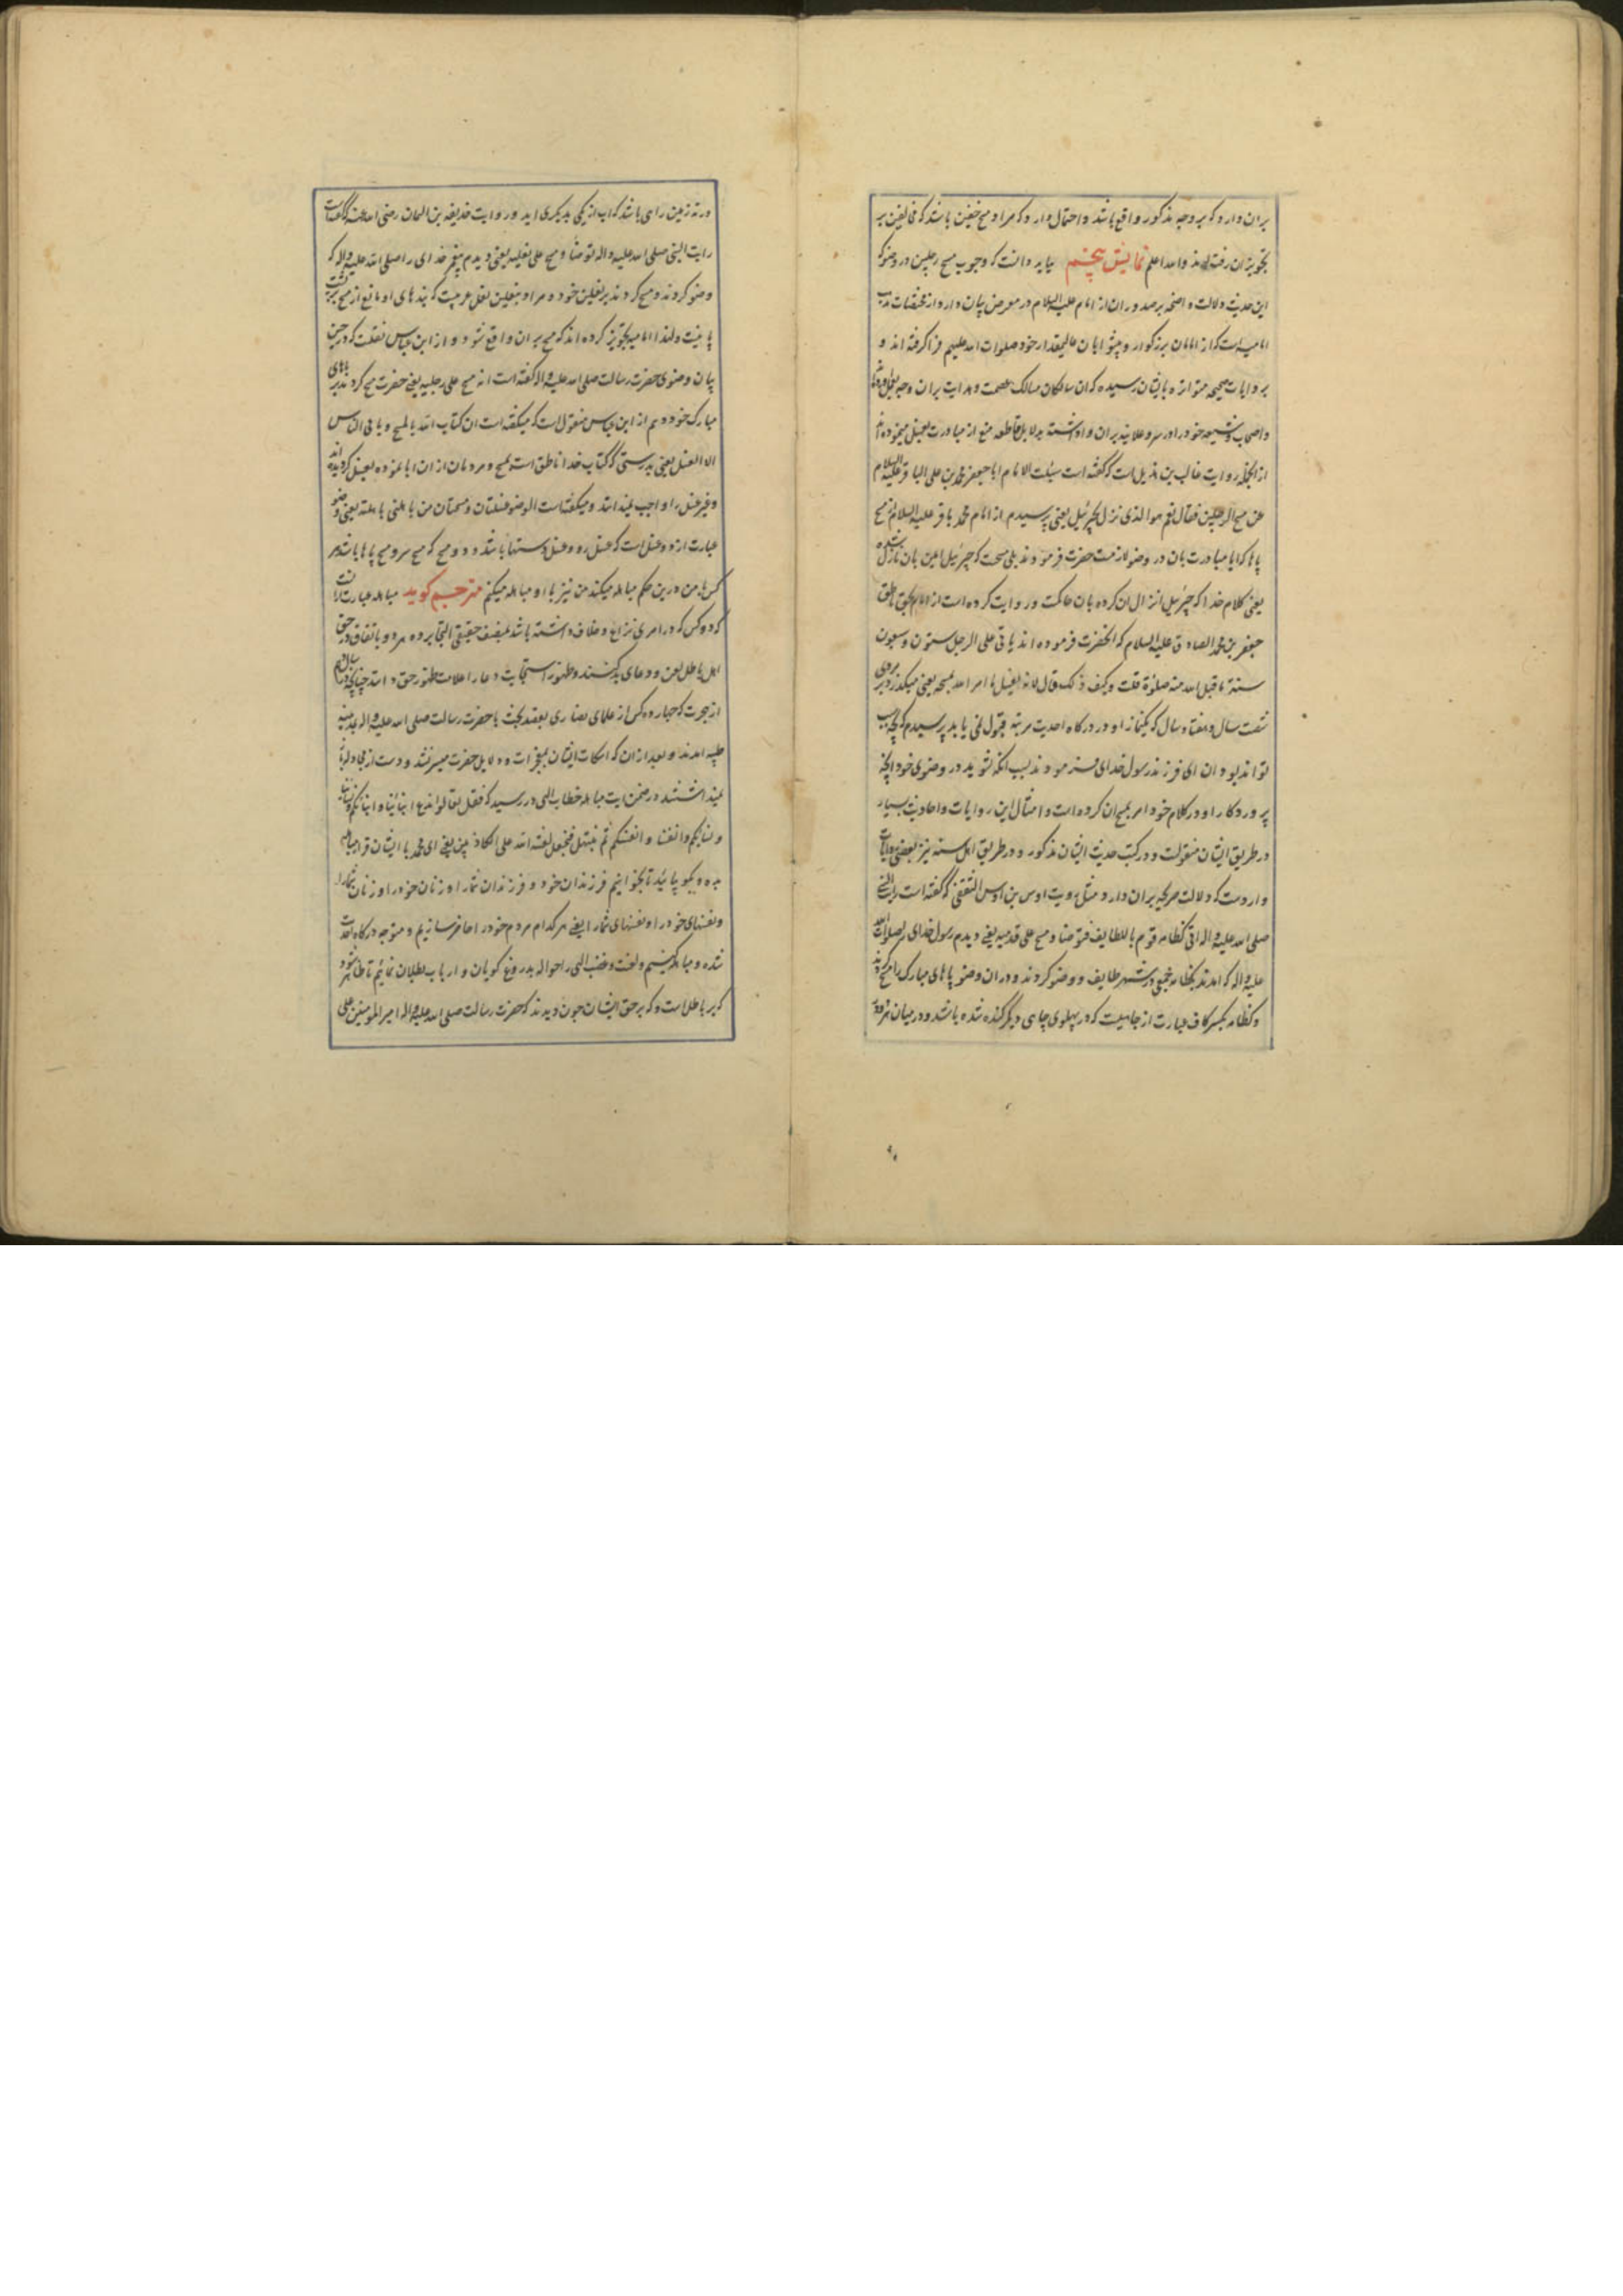 بران دارد که بر وجه مذکور واقع باشد و احتمال دارد که مراد مسح خفین باشد که مخالفین بر
تجویز ان رفته‌اند و الله اعلم نمایش پنجم بباید دانست که وجوب مسح رجلین در وضو که
این حدیث دلالت واضحه بر صدور ان از امام علیه السلام در معرض بیان دارد از مختصات مذهب
امامیه است که از امامان بزرکوار و پیشوایان عالیمقدار خود صلوات الله علیهم فرا کرفته اند و
بروایات صحیحه متواتره بایشان رسیده که ان سالکان مسالک عصمت و هدایت بران وجه
و اصحاب و شیعه خود را در سر و علانیه بران واداشته بدلایل قاطعه منع از مبادرت بغسل مینموده اند
از انجمله روایت غالب بن هذیل است که کفته است سئلت الامام ابا جعفر محمد بن علی الباقر علیه السلام
عن مسح الرجلین فقال نعم هو الذی نزل به جبرئیل یعنی پرسیدم از امام محمد باقر علیه السلام از مسح
پاها که ایا مبادرت بان در وضو لازمست حضرت فرمودند بلی مسحت که جبرئیل امین بان نازل شده
یعنی کلام خدا که جبرئیل انزال ان کرده بان حاکمست و روایت کرده است از امام بحق ناطق
جعفر بن محمد الصادق علیه السلام که انحضرت فرموده اند یاتی علی الرجل ستون و سبعون
سنة ما قبل الله منه صلوة قلت و کیف ذلک قال لانه یغسل ما امر الله بمسحه یعنی میکذرد بر مردی
شصت سال و هفتاد سال که یکنماز او در درکاه احدیت مرتبه قبول نمی یابد پرسیدم که بچه سبب
تواند بود ان ای فرزند رسول خدای فرمودند بسبب انکه بشوید در وضوی خود انچه
پروردکار او در کلام خود امر بمسح ان کرده است و امثال این روایات و احادیث بسیار
در طریق ایشان منقولست و در کتب حدیث ایشان مذکور و در طریق اهل سنه نیز بعضی روایات
واردست که دلالت صریحه بران دارد مثل روایت اوس بن اوس الثقفی که کفته است رایت النبی
صلی الله علیه واله اتی کظامه قوم بالطایف فتوضا و مسح علی قدمیه یعنی دیدم رسول خدای را صلوات الله
علیه واله که امدند بکظامه جمعی در شهر طایف و وضو کردند و دران وضو پاهای مبارک را مسح کردند
و کظامه بکسر کاف عبارت از چاهیست که در پهلوی چاهی دیکر کنده شده باشد و در میان هر دو
در ته زمین راهی باشد که اب از یکی بدیکری اید و روایت حذیفه بن الیمان رضی الله عنه که کفته است
رایت النبی صلی الله علیه واله توضا و مسح علی نعلیه یعنی دیدم پیغمبر خدای را صلی الله علیه واله که
وضو کردند و مسح کردند بر نعلین خود و مراد بنعلین نعل عربیست که بندهای او مانع از مسح پشت
پا نیست و لهذا امامیه تجویز کرده اند که مسح بران واقع شود و از ابن عباس نقلست که در حین
بیان وضوی حضرت رسالت صلی الله علیه واله کفته است انه مسح علی رجلیه یعنی حضرت مسح کردند بر پاهای
مبارک خود و هم از ابن عباس منقول است که میکفته است ان کتاب الله بالمسح و یابی الناس
الا الغسل یعنی بدرستی که کتاب خدا ناطق است بمسح و مردمان از ان ابا نموده بغسل کرویده اند
و غیر غسل را واجب نمیدانند و میکفته است الوضو غسلتان و مسحتان من باهلنی باهلته یعنی وضو
عبارت از دو غسل است که غسل رو و غسل دستها باشد و دو مسح که مسح سر و مسح پاها باشد هر
کس با من درین حکم مباهله میکند من نیز با او مباهله میکنم مترجم کوید مباهله عبارت ازانست
که دو کس که در امری نزاع و خلاف داشته باشند بمنصف حقیقی التجا برده هر دو باتفاق در حق
اهل باطل لعن و دعای بد کنند و ظهور استجابت دعا را علامت ظهور حق دانند چنانچه در سال دهم
از هجرت که چهارده کس از علمای نصاری بقصد بحث با حضرت رسالت صلی الله علیه واله بمدینه
طیبه امدند و بعد از ان که اسکات ایشان بمعجزات و دلایل حضرت میسر نشد و دست از مجادله باز
نمیداشتند در ضمن ایت مباهله خطاب الهی در رسید که فقل تعالوا ندع ابنائنا و ابنائکم و نسائنا
و نسائکم و انفسنا و انفسکم ثم نبتهل فنجعل لعنة الله علی الکاذبین یعنی ای محمد با ایشان قرار مباهله
بده و بکو بیائید تا بخوانیم فرزندان خود و فرزندان شما را و زنان خود را و زنان شما را
و نفسهای خود را و نفسهای شما را یعنی هر کدام مردم خود را حاضر سازیم و متوجه درکاه احدیت
شده و مباهله کنیم و لعنت و غضب الهی را حواله بدروغ کویان و ارباب بطلان نمائیم تا ظاهر شود
که بر باطل است و که بر حق ایشان چون دیدند که حضرت رسالت صلی الله علیه واله امیر المومنین علی